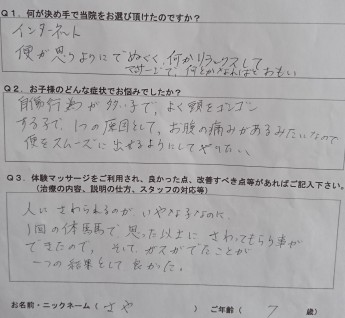 Q1. 何が決め手で当院をお選び頂けたのですか?
インターネット
便が思うようにでぬくく、何かリラックスして
マッサージで、何とかなればとおもい
Q2. お子様のどんな症状でお悩みでしたか?
自傷行為が多い子で、よく頭をゴンゴン
する子で、1つの原因として、お腹の痛みがあるみたいなので
便をスムーズに出せるようにしてやりたい、
Q3. 体験マッサージをご利用され、良かった点、改善すべき点等があればご記入下さい。
(治療の内容、説明の仕方、スタッフの対応等)
人にさわられるのが、いやな子なのに、
1回の体験で思った以上にさわってもらう事が
できたので、そして、ガスがでたことが
一つの結果として良かった。
お名前・ニックネーム( さや ) ご年齢( 7 歳)